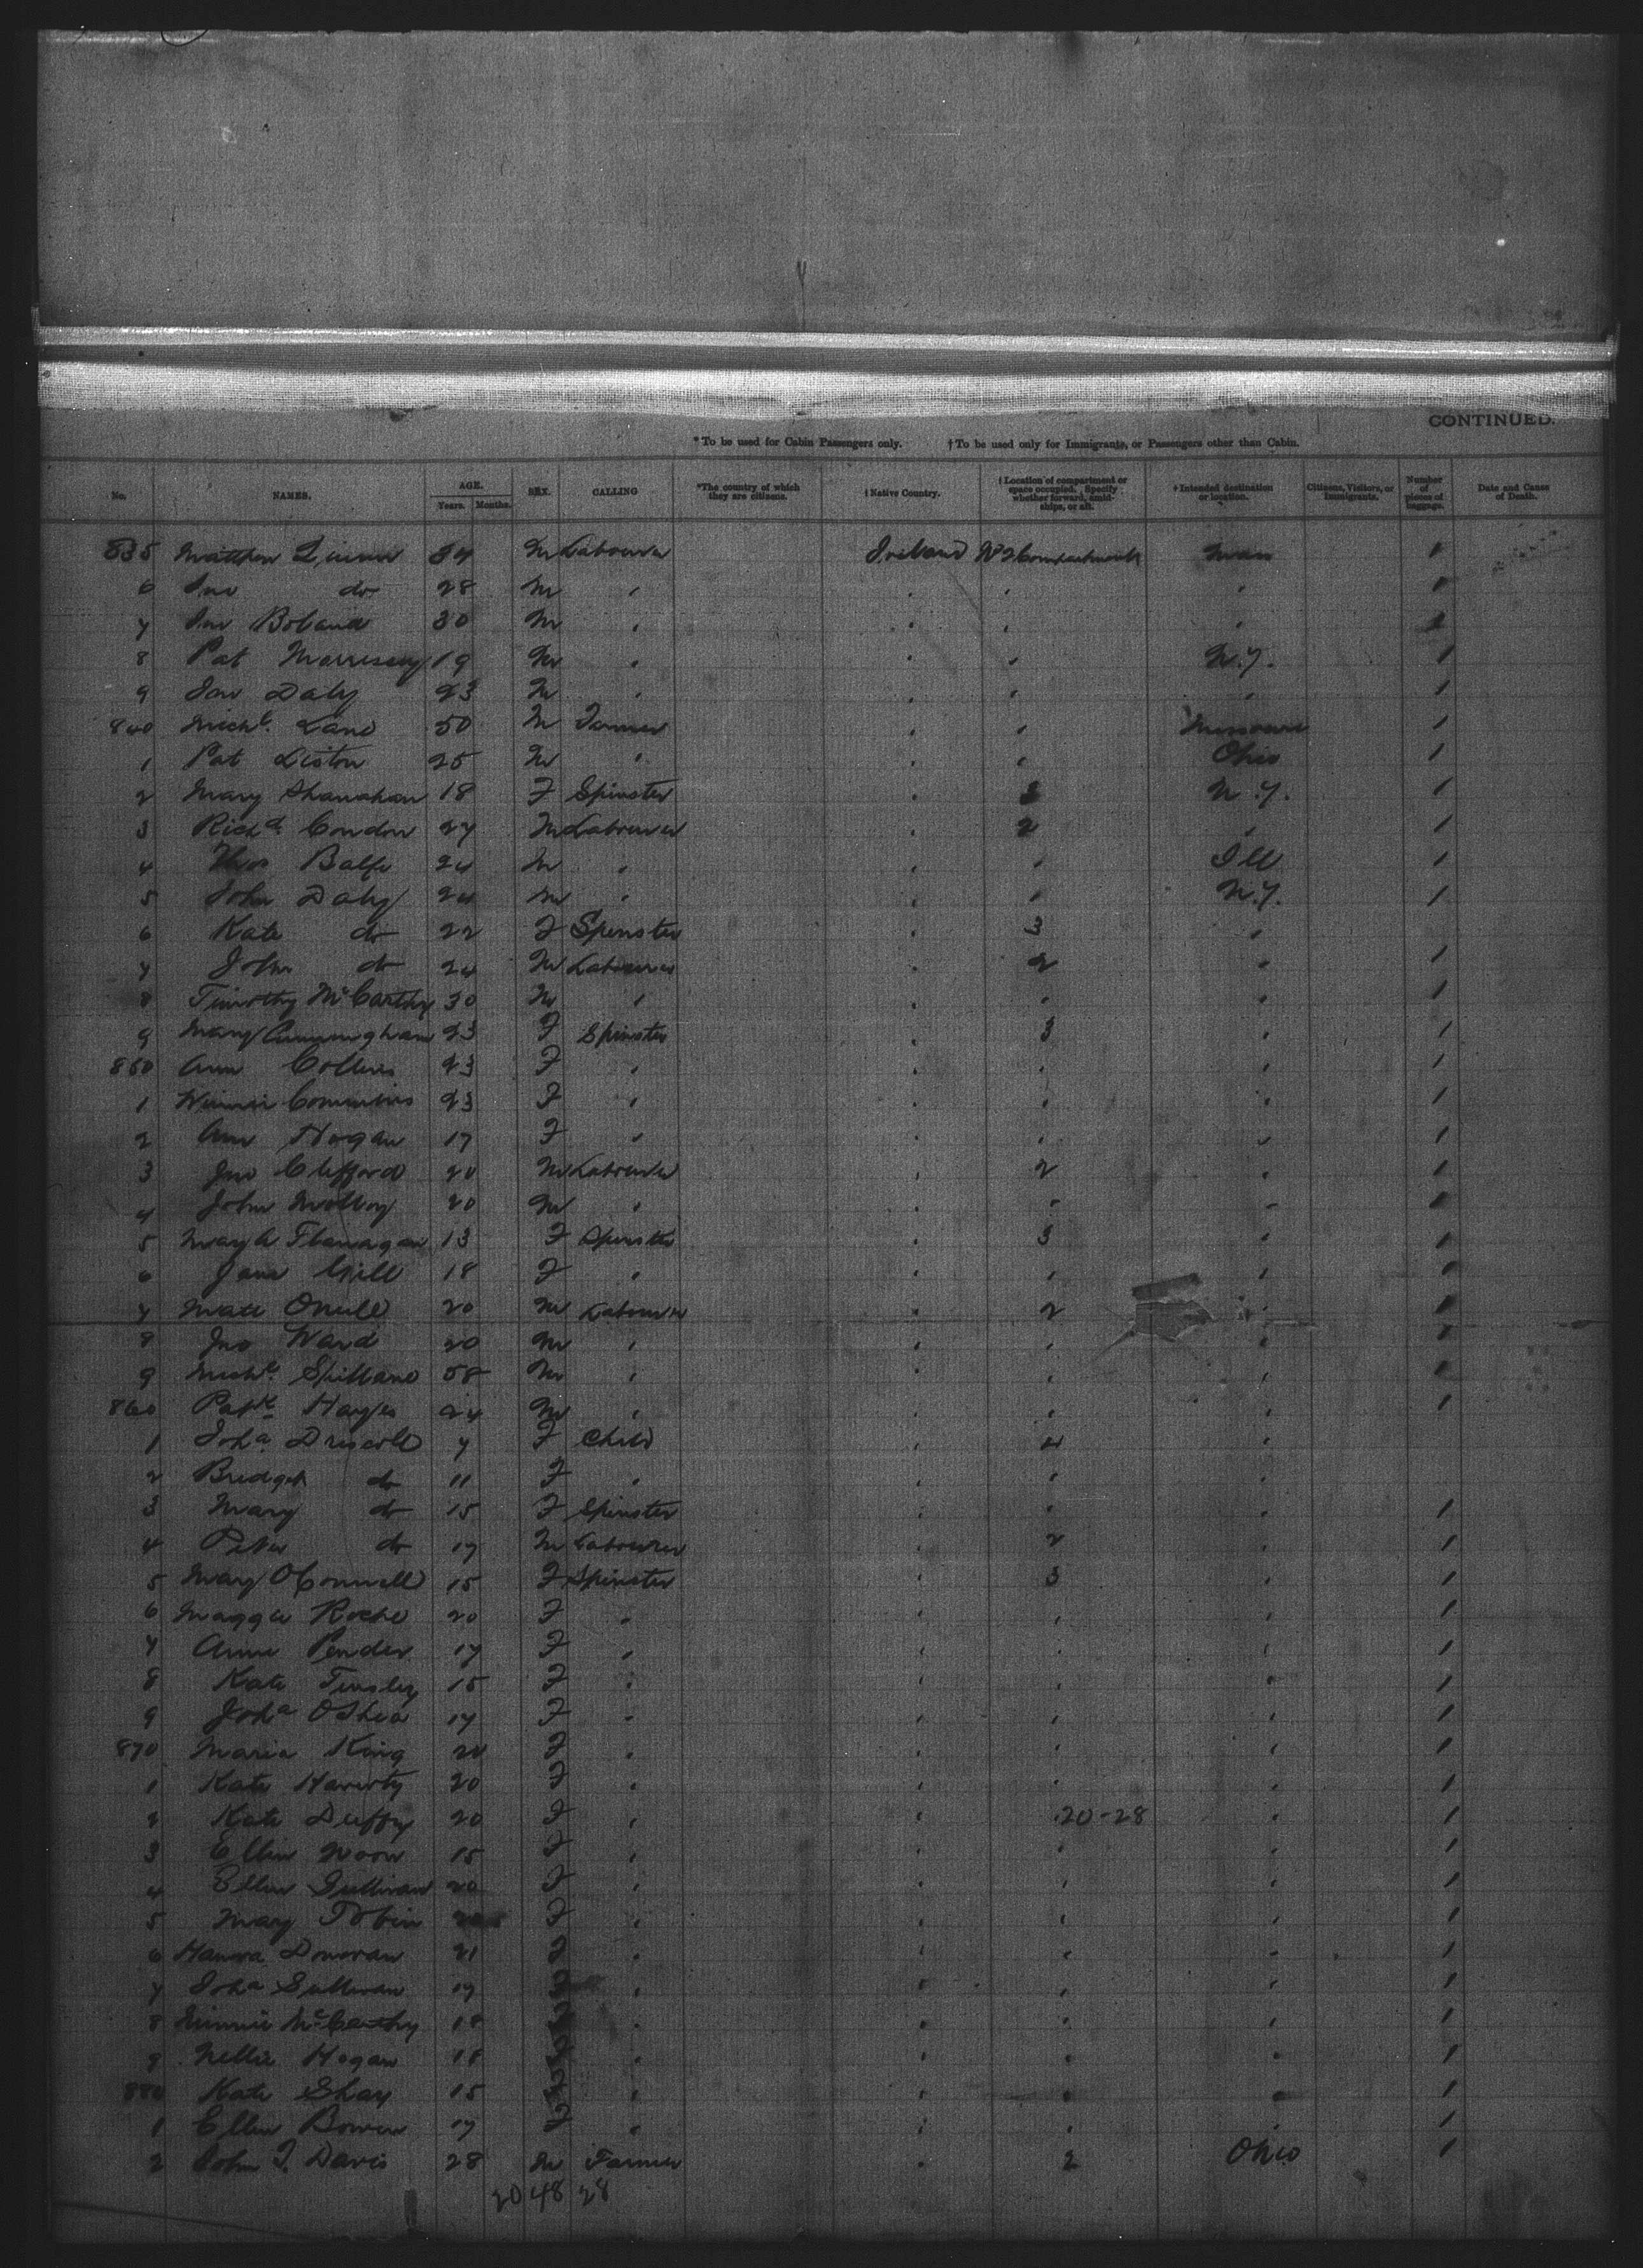 CONTINUED.
*To be used for Cabin Passengers only. †To be used only for Immigrants, or Passengers other than Cabin.
No. NAMES. AGE. Years. Months. SEX. CALLING *The country of which they are citizens. †Native Country. †Location of compartment or space occupied. Specify whether forward, amidships, or aft. †Intended destination or location. Citizens, Visitors, or Immigrants. Number of pieces of baggage. Date and Cause of Death.
835 Matthew 34 M Labourer Ireland No 2 Compartment 1
6 Jno do 28 M " " " " 1
7 Boland 30 M " " " "
8 Pat Morrissey 19 M " " " N.Y. 1
9 Daly 23 M " " " " 1
840 Michl. Lane 50 M Farmer " " Missouri 1
1 Pat Liston 25 M " " " Ohio 1
2 Mary Shanahan 18 F Spinster " 3 N.Y. 1
3 Richd. Condon 27 M Labourer " 2 " 1
4 Thos Balfe 24 M " " " Ill 1
5 John Daly 24 M " " " N.Y. 1
6 Kate do 22 F Spinster " 3 "
7 John do 24 M Labourer " 2 " 1
8 Timothy McCarthy 30 M " " " " 1
9 Mary Cunningham 23 F Spinster " 3 " 1
850 Ann Collins 23 F " " " " 1
1 Winnie Commins 23 F " " " " 1
2 Ann Hogan 17 F " " " " 1
3 Jno Clifford 20 M Labourer " 2 " 1
4 John Molloy 20 M " " " " 1
5 Mary A Flanagan 13 F Spinster " 3 " 1
6 Jane Gill 18 F " " " " 1
7 Matt ONeill 20 M Labourer " 2 " 1
8 Jno Ward 20 M " " " " 1
9 Michl. Spillane 58 M " " " " 1
860 Patk. Hayes 24 M " " " " 1
1 Joha. Driscoll 7 F Child " 4 "
2 Bridget do 11 F " " " "
3 Mary do 15 F Spinster " " " 1
4 Peter do 17 M Labourer " 2 " 1
5 Mary OConnell 15 F Spinster " 3 " 1
6 Maggie Roche 20 F " " " " 1
7 Annie Pender 17 F " " " " 1
8 Kate Tinsley 15 F " " " " 1
9 Joha OShea 17 F " " " " 1
870 Maria King 20 F " " " " 1
1 Kate Haverty 20 F " " " " 1
2 Kate Duffy 20 F " " 20-28 " 1
3 Ellen 15 F " " " " 1
4 Ellen Sullivan 20 F " " " " 1
5 Mary Tobin F " " " " 1
6 Hanora Donovan 21 F " " " " 1
7 Joha Sullivan 17 F " " " " 1
8 Minnie McCarthy 18 F " " " " 1
9 Nellie Hogan 18 F " " " " 1
880 Kate Shay 15 F " " " " 1
1 Ellen Bowen 17 F " " " " 1
2 John J. Davis 28 M Farmer " 2 Ohio 1
20 48 28